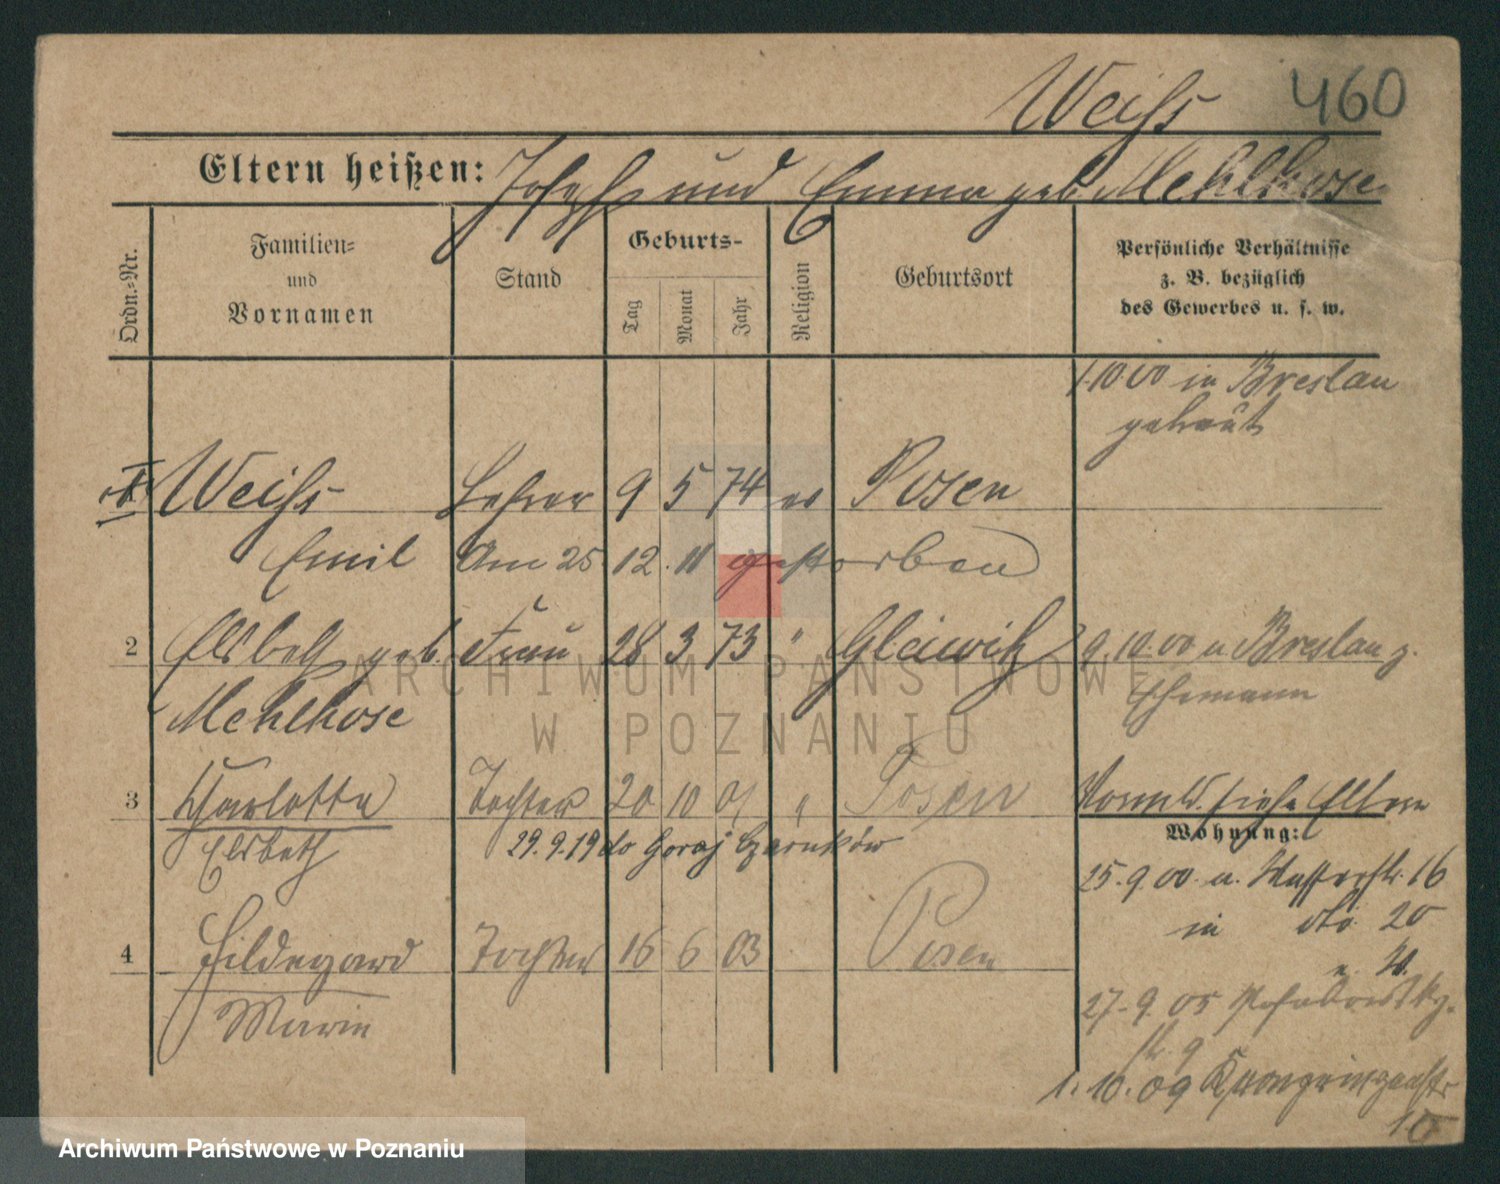 Weiss 460
Eltern heißen: Joseph und Emma geb. Mehlhose
Ordn.-Nr.
Familien-
und
Vornamen
Stand
Geburts-
Tag
Monat
Jahr
Religion
Geburtsort
Persönliche Verhältnisse
z. B. bezüglich
des Gewerbes u. s. w.
1.10.00 in Breslau
getraut
Weiss Lehrer 9 5 74 ev Posen
Emil Am 25 12. 11 gestorben
2 Elsbeth geb. Frau 28 3 73 " Gleiwitz 9.10.00 v Breslau z.
Mehlhose Ehemann
3 Charlotte Tochter 20 10 01 " Posen siehe Eltern
Elsbeth 29.9.19 do Goraj Czarnków
Wohnung:
25.9.00 a. Wasserstr. 16
in 20
4 Hildegard Tochter 16 6 03 Posen
Marie
27.9.05
str. 9
1.10.09 Kronprinzenstr
ARCHIWUM PAŃSTWOWE
W POZNANIU
Archiwum Państwowe w Poznaniu